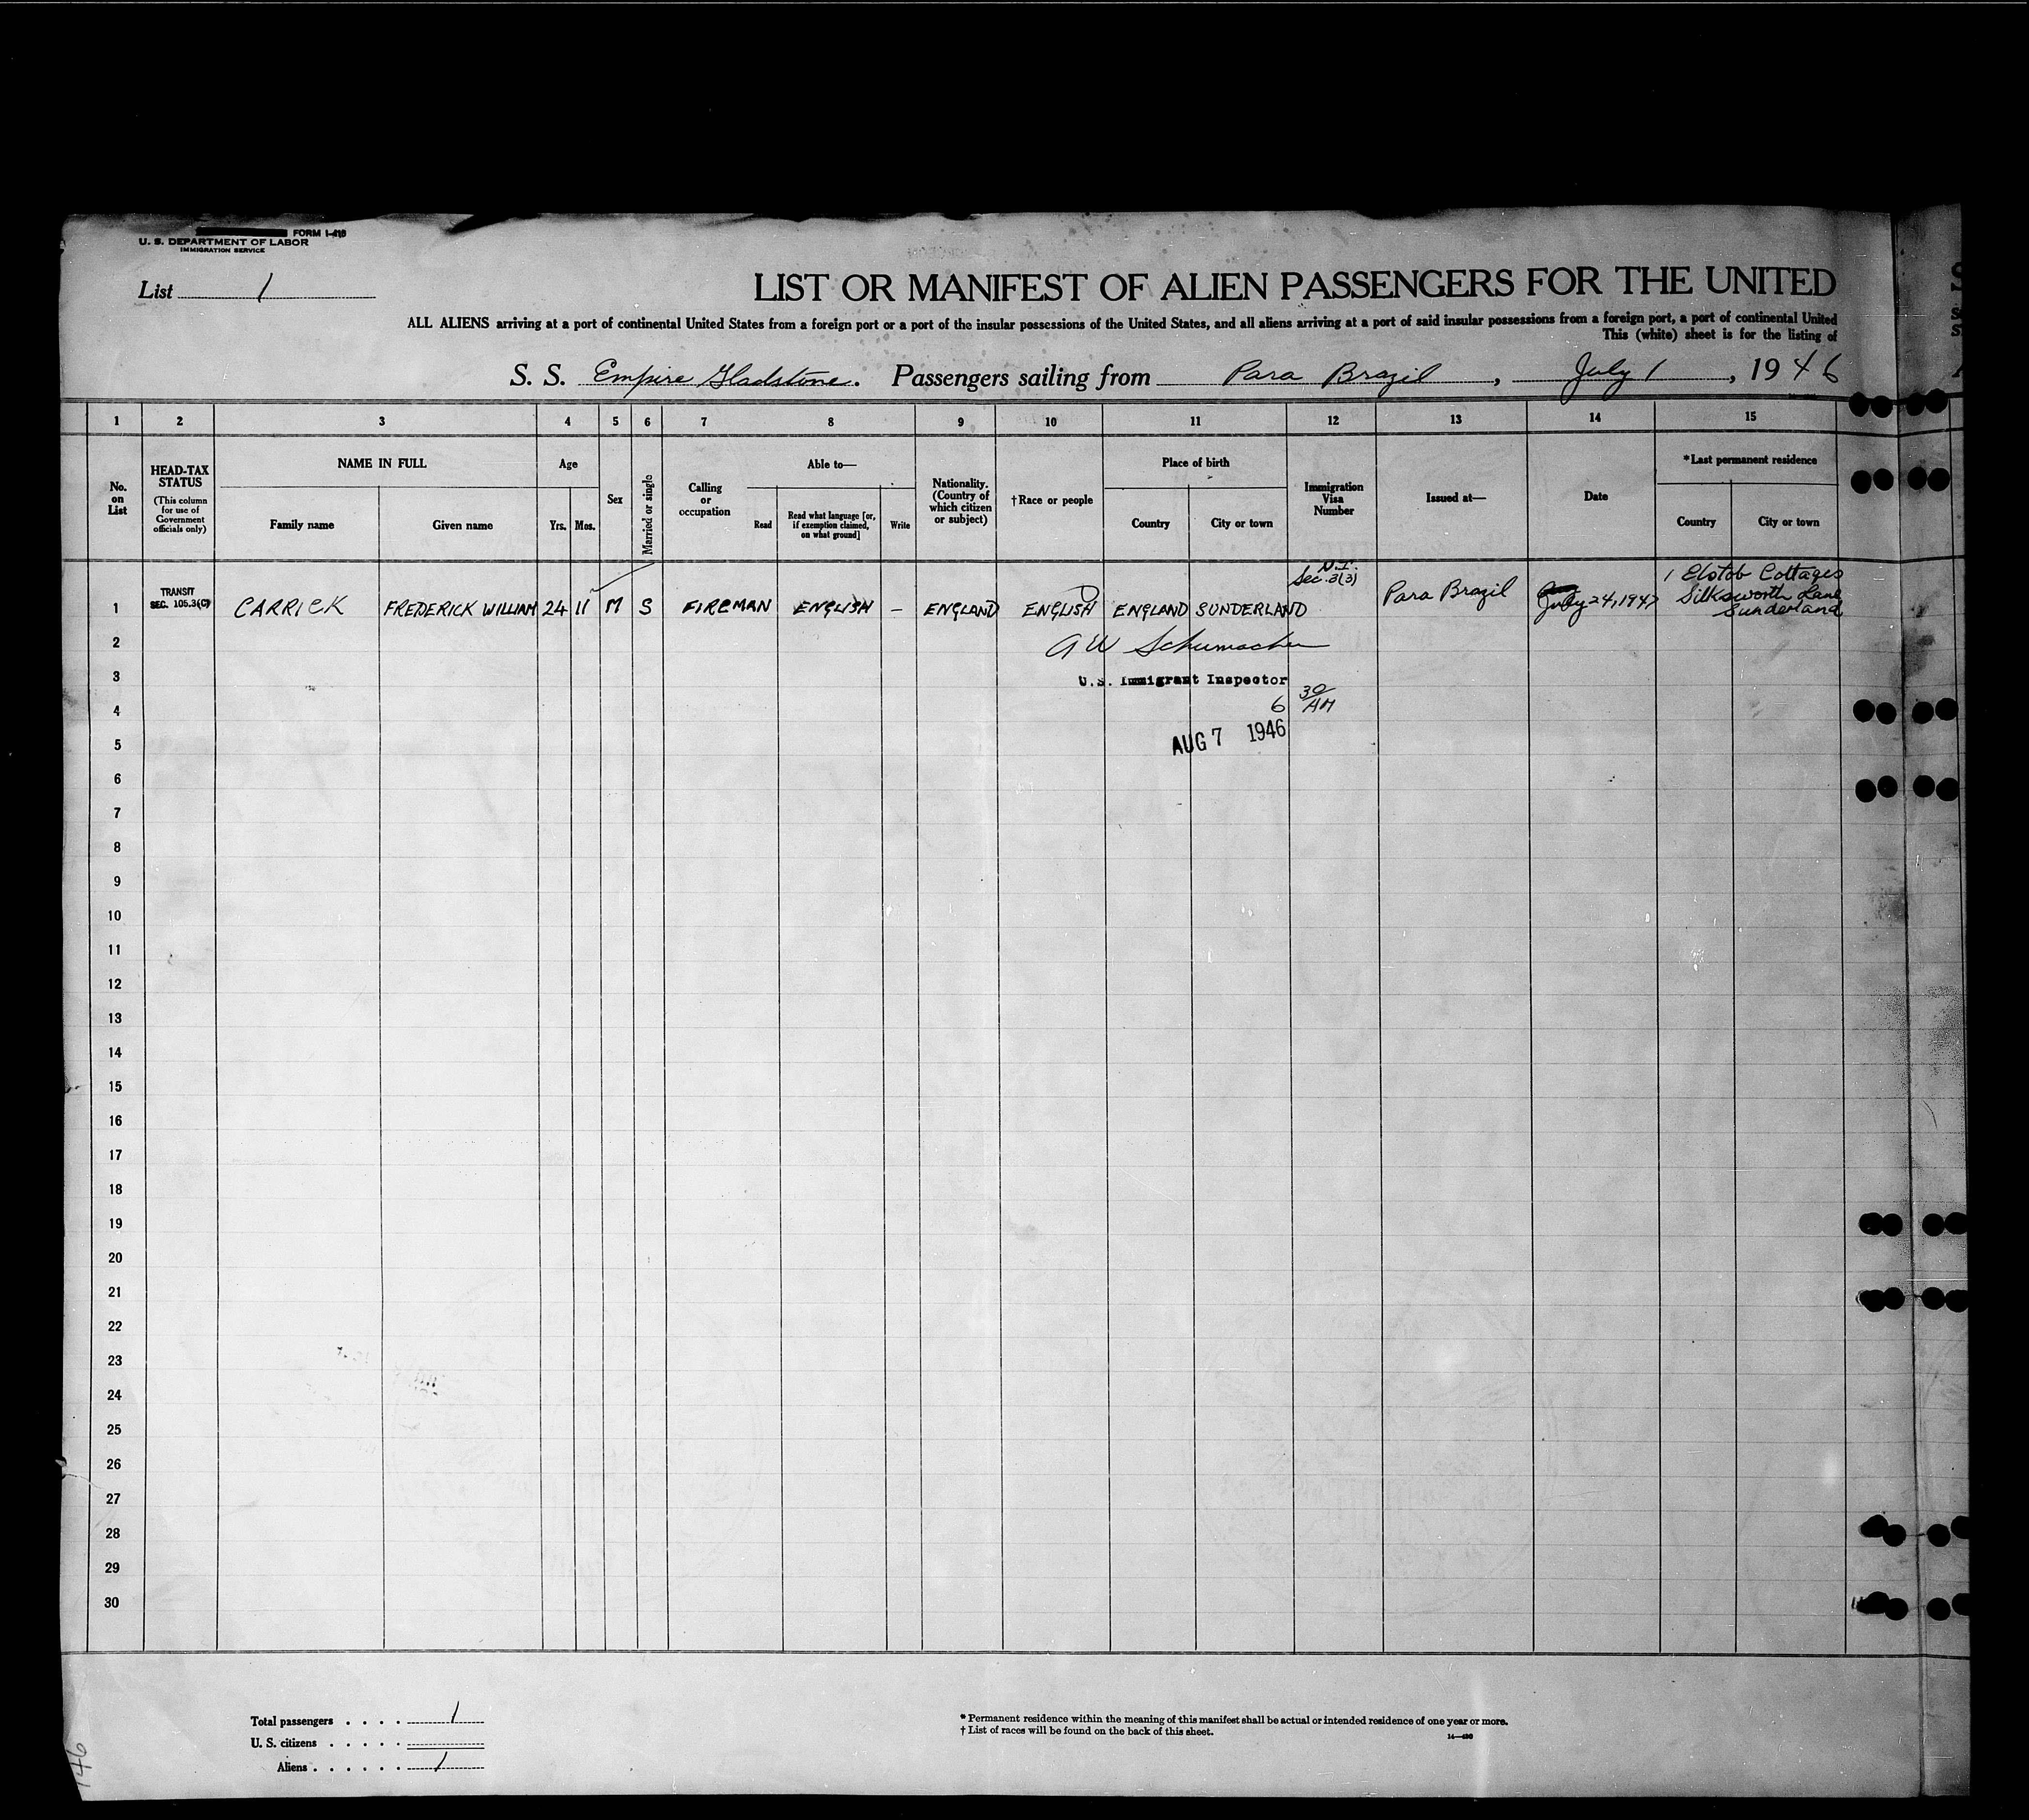 FORM I-419
U. S. DEPARTMENT OF LABOR
IMMIGRATION SERVICE
List 1
LIST OR MANIFEST OF ALIEN PASSENGERS FOR THE UNITED
ALL ALIENS arriving at a port of continental United States from a foreign port or a port of the insular possessions of the United States, and all aliens arriving at a port of said insular possessions from a foreign port, a port of continental United
This (white) sheet is for the listing of
S. S. Empire Gladstone. Passengers sailing from Para Brazil, July 1, 1946
1 2 3 4 5 6 7 8 9 10 11 12 13 14 15
No. on List
HEAD-TAX STATUS
(This column for use of Government officials only)
NAME IN FULL
Family name
Given name
Age
Yrs.
Mos.
Sex
Married or single
Calling or occupation
Able to—
Read
Read what language [or, if exemption claimed, on what ground]
Write
Nationality. (Country of which citizen or subject)
†Race or people
Place of birth
Country
City or town
Immigration Visa Number
Issued at—
Date
*Last permanent residence
Country
City or town
1 TRANSIT SEC. 105.3(C) CARRICK FREDERICK WILLIAM 24 11 M S FIREMAN ENGLISH – ENGLAND ENGLISH ENGLAND SUNDERLAND Sec. 3(3) Para Brazil July 24, 1947 1 Elstob Cottages Silksworth Lane Sunderland
2 A W Schumacher
3 U.S. Immigrant Inspector
4 6 30 AM
5 AUG 7 1946
6
7
8
9
10
11
12
13
14
15
16
17
18
19
20
21
22
23
24
25
26
27
28
29
30
Total passengers . . . . 1
U. S. citizens . . . . .
Aliens . . . . . . 1
* Permanent residence within the meaning of this manifest shall be actual or intended residence of one year or more.
† List of races will be found on the back of this sheet.
146